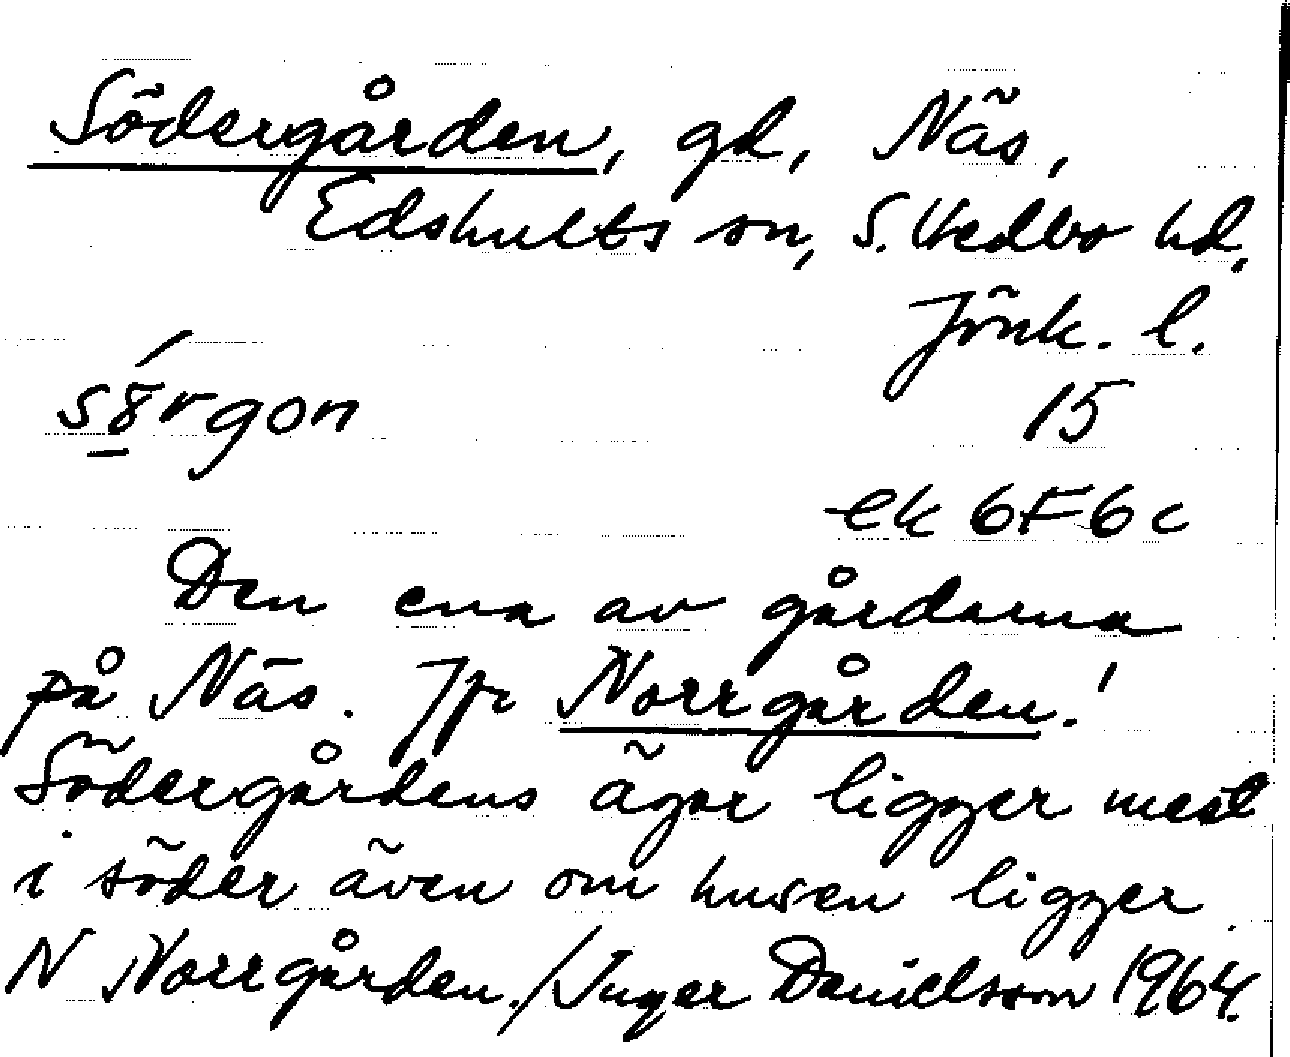 Södergården, gd, Näs,
Edshults sn, S. Vedbo hd,
Jönk. l.
15
ek 6F6c
Den ena av gårdarna
på Näs. Jfr Norrgården!
Södergårdens ägor ligger mest
i söder även om husen ligger
N Norrgården./Inger Danielsson 1964.